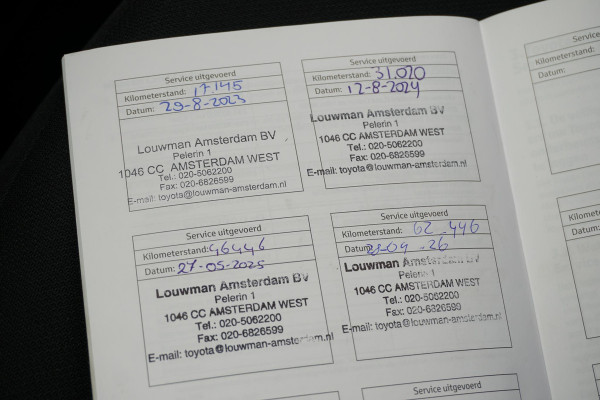 Service uitgevoerd
Kilometerstand: 17145
Datum: 29-8-2023
Louwman Amsterdam BV
Pelerin 1
1046 CC AMSTERDAM WEST
Tel.: 020-5062200
Fax: 020-6826599
E-mail: toyota@louwman-amsterdam.nl
Service uitgevoerd
Kilometerstand: 31.020
Datum: 12-8-2024
Louwman Amsterdam BV
Pelerin 1
1046 CC AMSTERDAM WEST
Tel.: 020-5062200
Fax: 020-6826599
E-mail: toyota@louwman-amsterdam.nl
Service uitgevoerd
Kilometerstand: 46446
Datum: 27-05-2025
Louwman Amsterdam BV
Pelerin 1
1046 CC AMSTERDAM WEST
Tel.: 020-5062200
Fax: 020-6826599
E-mail: toyota@louwman-amsterdam.nl
Service uitgevoerd
Kilometerstand: 62.446
Datum: 21-04-26
Louwman Amsterdam BV
Pelerin 1
1046 CC AMSTERDAM WEST
Tel.: 020-5062200
Fax: 020-6826599
E-mail: toyota@louwman-amsterdam.nl
Service uitgevoerd
Service
Kilometerstand:
Datum:
Kilometer
Datum: